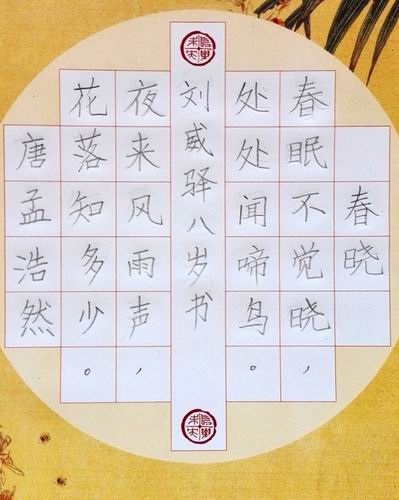 春晓
春眠不觉晓，
处处闻啼鸟。
刘威驿八岁书
夜来风雨声，
花落知多少。
唐孟浩然